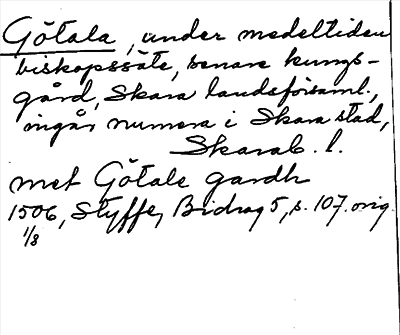 Götala, under medeltiden
biskopssäte, senare kungs-
gård, Skara landsförsaml.,
ingår numera i Skara stad,
Skarab. l.
met Götale gardh
1506, Styffe, Bidrag 5, s. 107. orig.
1/8